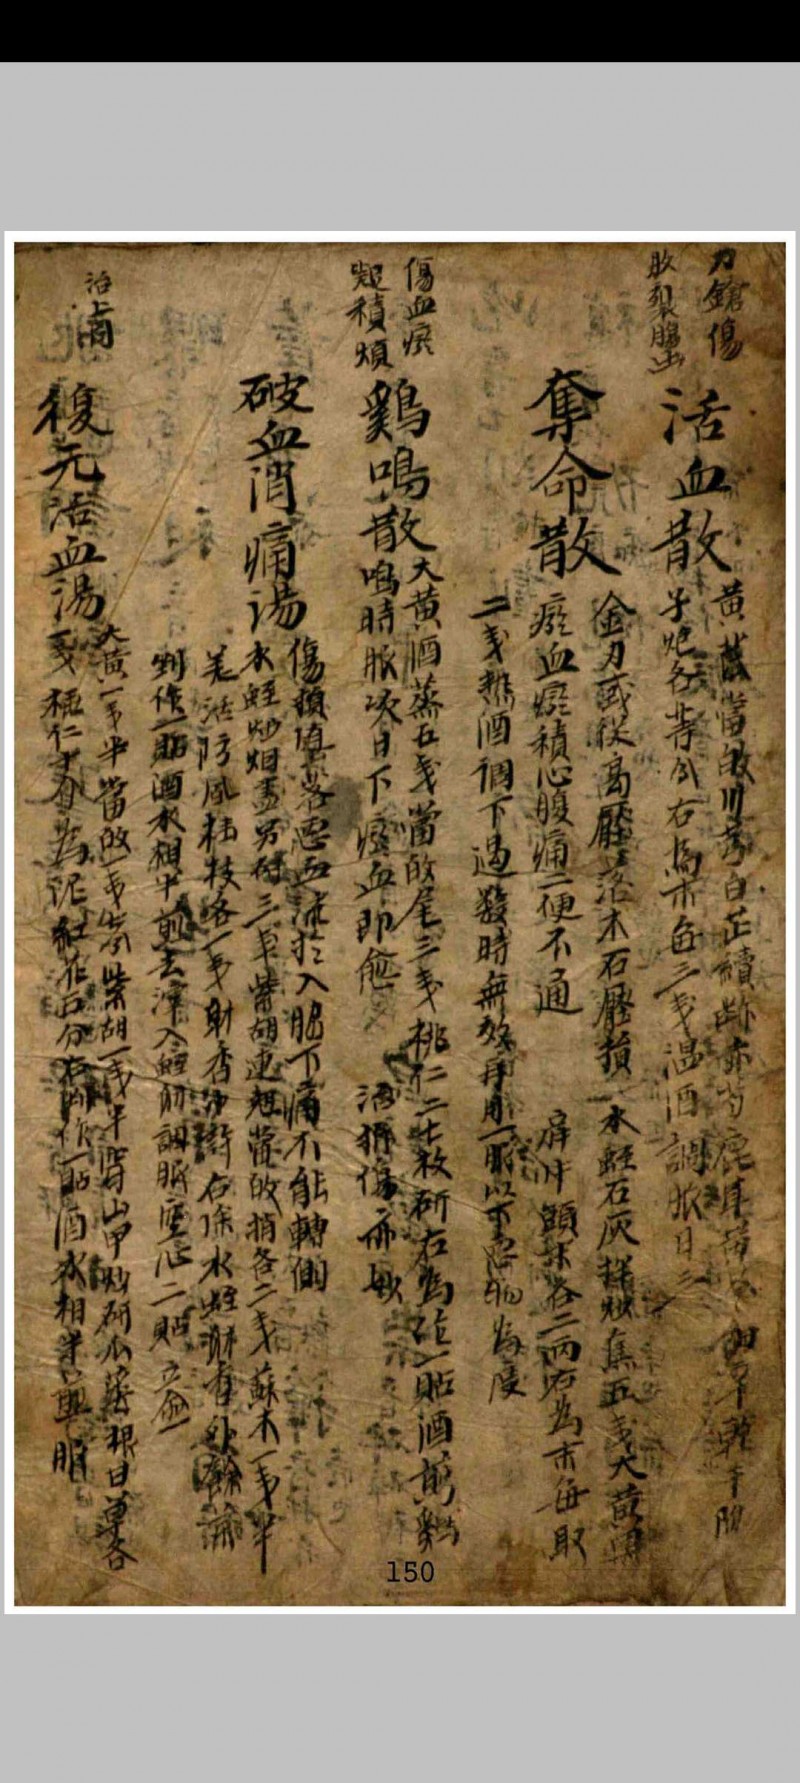 刀鎗傷
肚裂腸出
活血散
黃芪當敀川芎白芷續断赤芍鹿茸黃芩細辛乾干附
子炮各等分右爲末每三戔温酒調服日三
奪命散
金刀或從高壓落木石壓損 水蛭石灰拌炒焦五戔大黃黑
瘀血瘀積心腹痛二便不通 頭末各二兩右為末每取
二戔熱酒調下過數時無效再用一服以下惡物為度
傷血瘀
積煩
鷄鳴散
大黃酒蒸五戔當敀尾三戔桃仁二七枚研右為一貼酒煎鷄
鳴時服次日下瘀血即愈 治折傷亦妙
破血消痛湯
傷損墮落惡血流於入脇下痛不能轉側
水蛭炒烟盡另研三戔柴胡連翹當敀梢各二戔蘇木一戔半
羌活防風桂枝各一戔射香少許右除水蛭射香外餘
剉作一貼酒水相半煎去滓入蛭射調服空心二貼立愈
治上同
復元活血湯
大黃一戔半當敀一戔柴胡一戔半穿山甲炒研瓜蔞根甘草各
一戔桃仁十介為泥紅花五分右剉作一貼酒水相半煎服
150